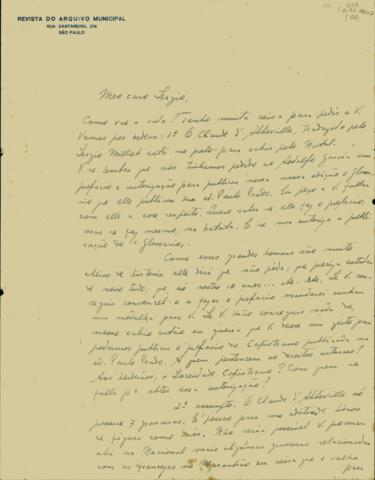 REVISTA DO ARQUIVO MUNICIPAL
RUA CANTAREIRA, 216
SÃO PAULO
Meu caro Sergio,
Como vae a vida? Tenho muita coisa para pedir a V.
Vamos por ordem: 1º O Claude d'Abbeville, traduzido pelo
Sergio Milliet está no prelo para sahir pelo Natal.
V. se lembra que nós tinhamos pedido ao Rodolfo Garcia um
prefacio e autorização para publicar nessa nossa edição o glossa-
rio que elle publicou na ed. Paulo Prado. Eu peço a V. fallar
com elle a esse respeito. Quero saber se elle faz o prefacio,
mas se faz mesmo, na batata. E se nos autoriza a publi-
cação do glossario.
Como esses grandes homens são muito
cheios de historia elle dirá que não póde, que precisa estudar
de novo tudo, que só nestes 10 annos... etc. etc. Se V. con-
seguir convencel-o a fazer o prefacio mandarei cunhar
uma medalha para V. Se V. não conseguir nada do
nosso sabio então eu queria que V. desse um geito para
podermos publicar o prefacio do Capistrano publicado na
ed. Paulo Prado. A quem pertencem os direitos autoraes?
Aos herdeiros, a Sociedade Capistrano? Com quem se
falla para obter essa autorização?
2º assumpto. O Claude d'Abbeville só
possue 7 gravuras. É pouco para um editor de livros
de figuras como nós. Não seria possivel V. procurar
ahi na Nacional mais algumas gravuras relacionadas
com os francezes no Maranhão ou coisa que o valha
para